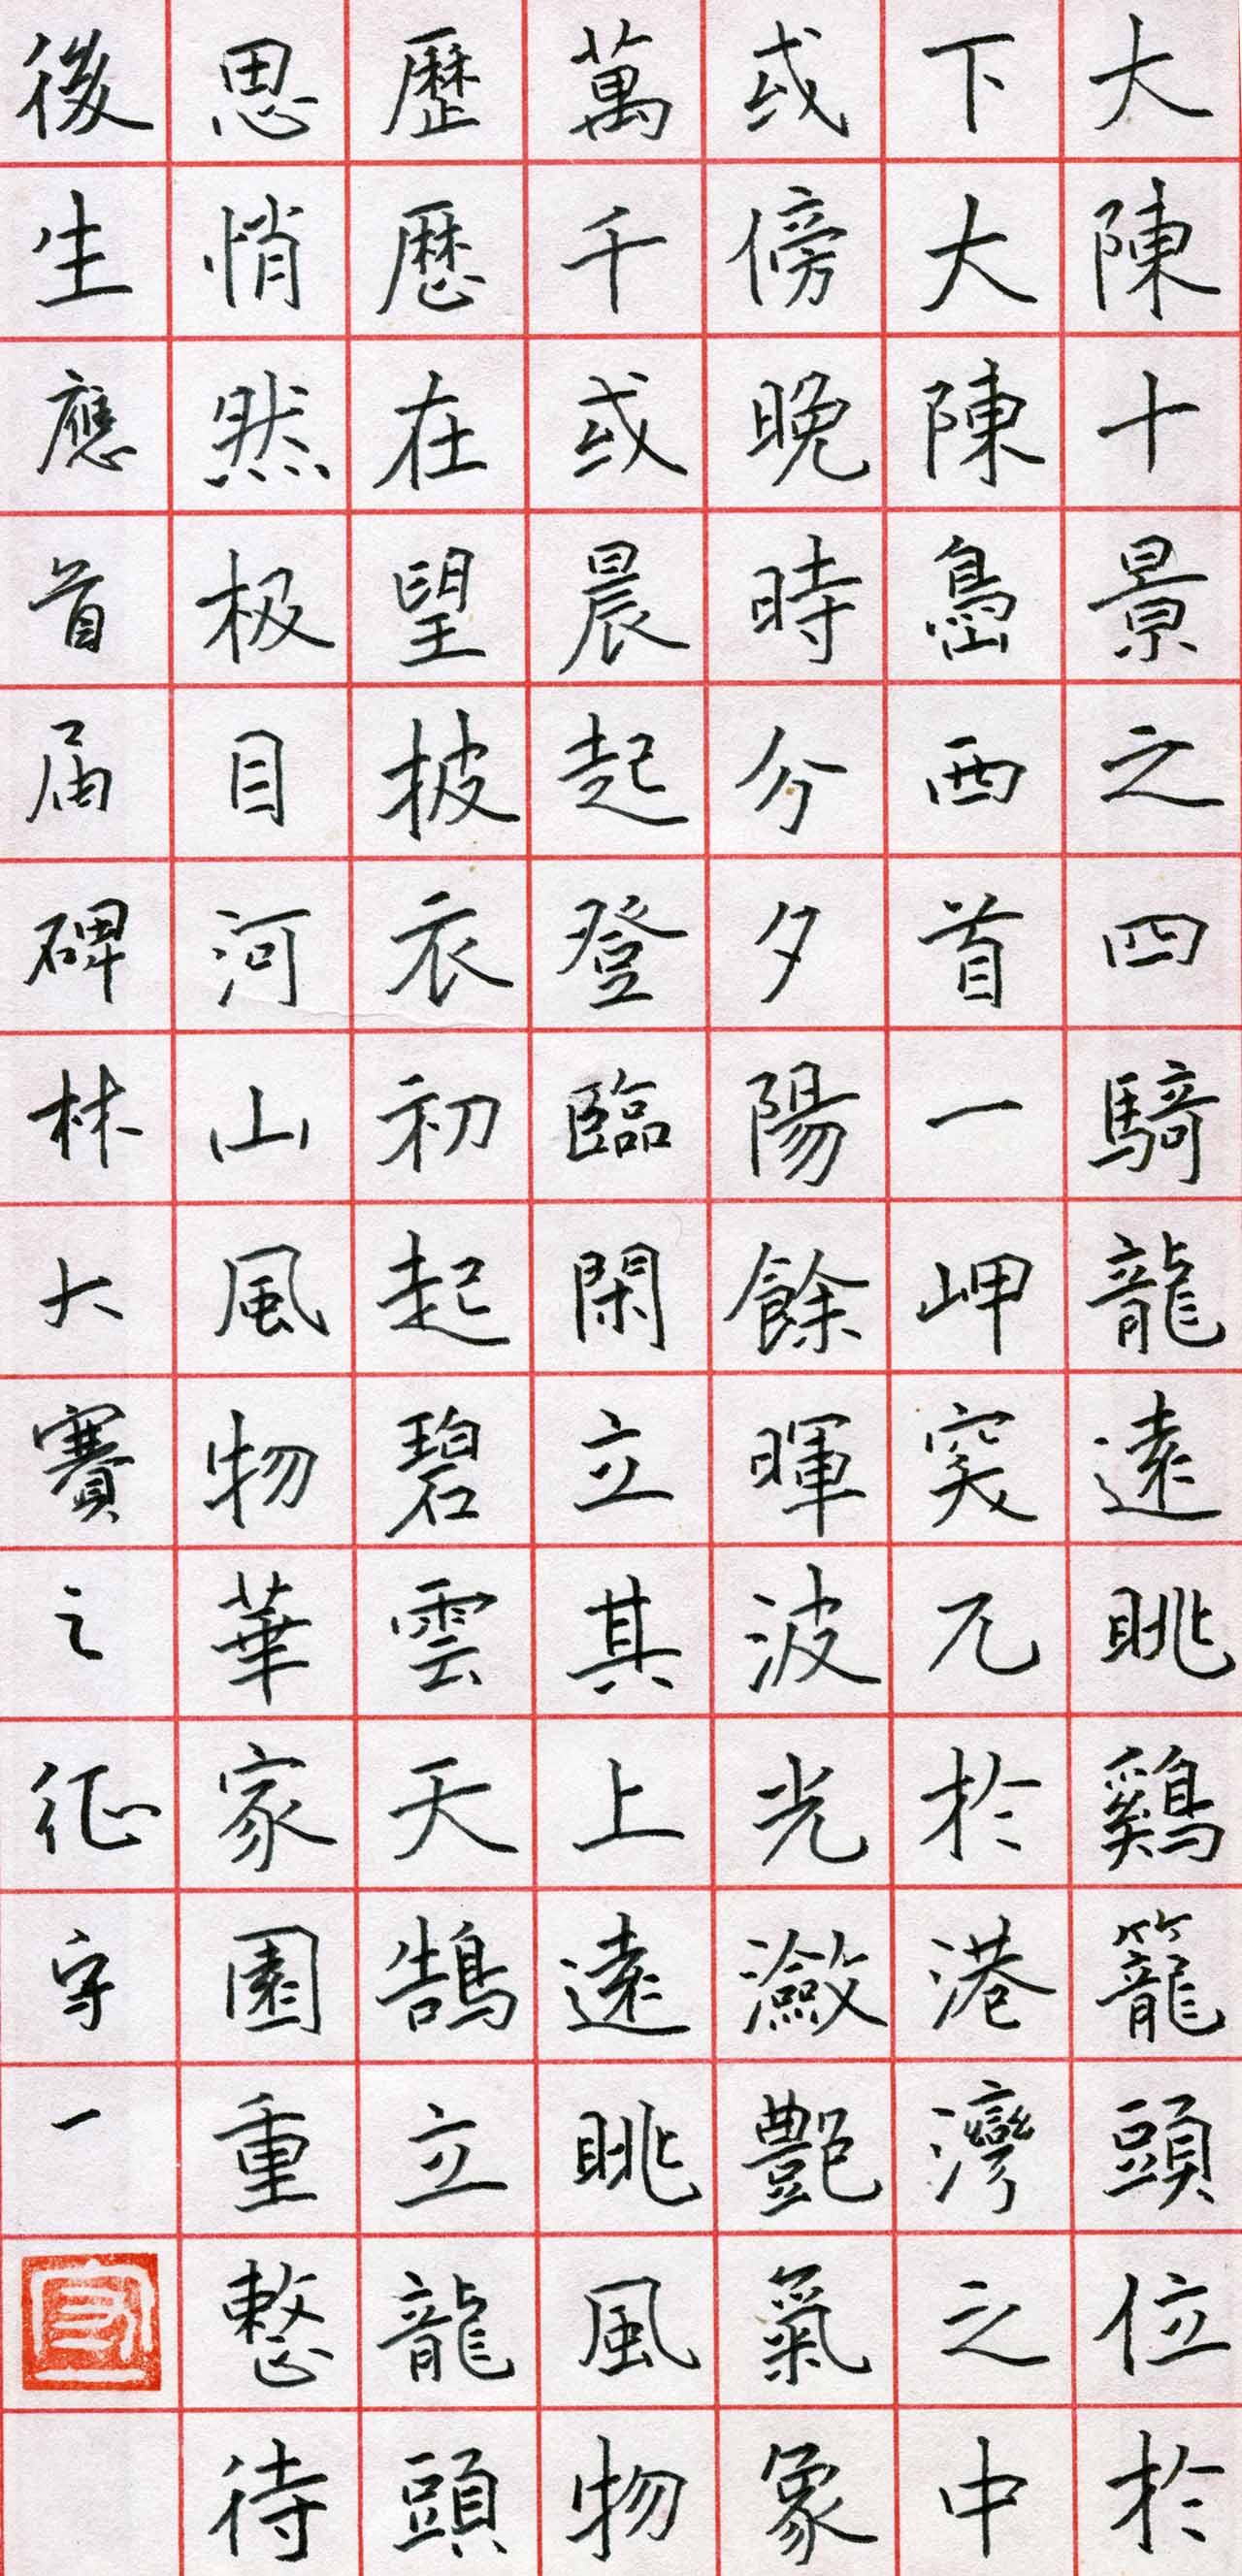 大陳十景之四騎龍遠眺鷄籠頭位於
下大陳島西首一岬突兀於港灣之中
或傍晚時分夕陽餘暉波光瀲艷氣象
萬千或晨起登臨閑立其上遠眺風物
歷歷在望披衣初起碧雲天鵠立龍頭
思悄然极目河山風物華家園重整待
後生應首届碑林大賽之征守一